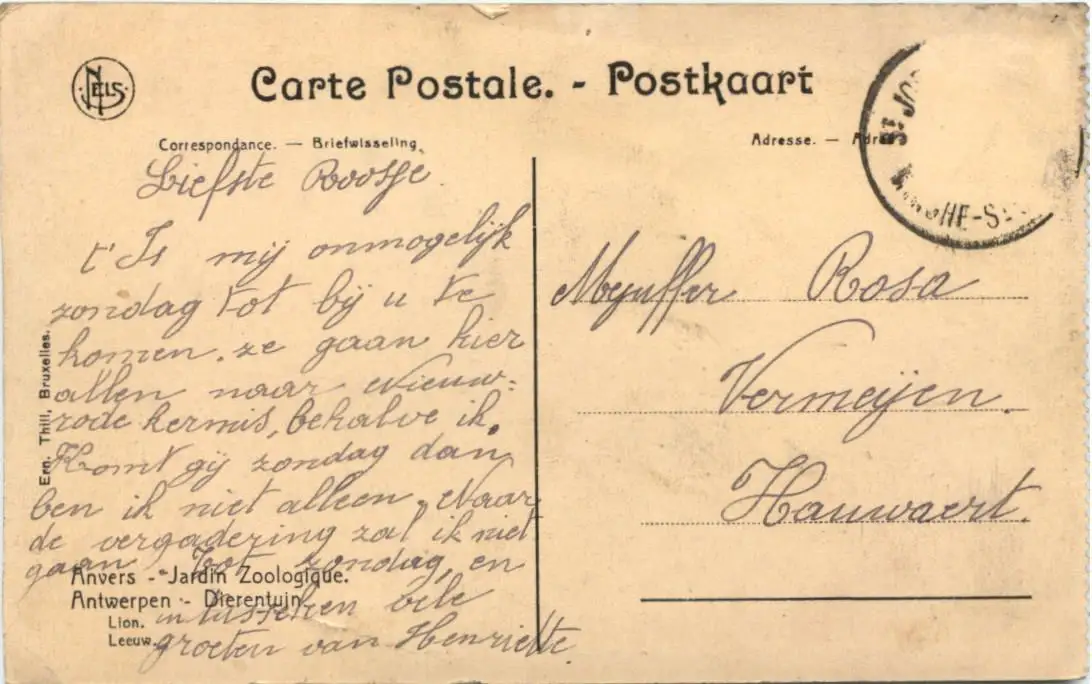 NELS
Carte Postale. - Postkaart
Correspondance. — Briefwisseling.
Adresse. —
Liefste Roosje
t' Is mij onmogelijk
zondag tot bij u te
komen. ze gaan hier
allen naar Nieuw=
rode kermis, behalve ik.
Komt gij zondag dan
ben ik niet alleen. Naar
de vergadering zal ik niet
gaan. Tot zondag, en
in tusschen vele
groeten van Henriette.
Mejuffer Rosa
Vermeijen.
Hauwaert.
Ern. Thill, Bruxelles.
Anvers - Jardin Zoologique.
Antwerpen - Dierentuin.
Lion.
Leeuw.